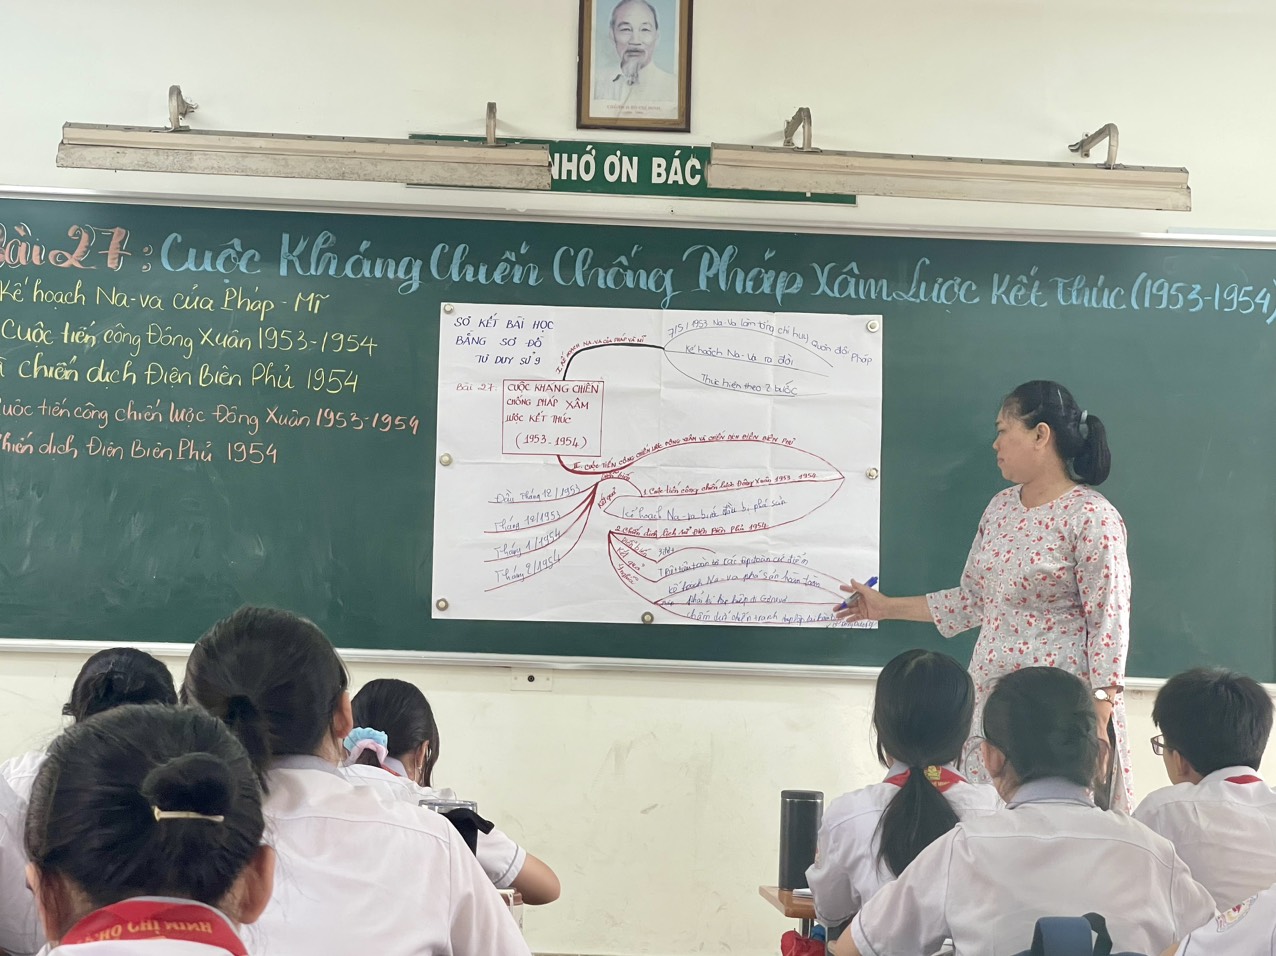 NHỚ ƠN BÁC
Bài 27: Cuộc Kháng Chiến Chống Pháp Xâm Lược Kết Thúc (1953-1954)
Kế hoạch Na-va của Pháp - Mĩ
Cuộc tiến công Đông Xuân 1953-1954
chiến dịch Điện Biên Phủ 1954
Cuộc tiến công chiến lược Đông Xuân 1953-1954
chiến dịch Điện Biên Phủ 1954
SƠ KẾT BÀI HỌC
BẰNG SƠ ĐỒ
TƯ DUY SỬ 9
I. KẾ HOẠCH NA-VA CỦA PHÁP VÀ MĨ
7/5/1953 Na-Va làm tổng chỉ huy Quân đội Pháp
Kế hoạch Na-Va ra đời
Thực hiện theo 2 bước
Bài 27:
CUỘC KHÁNG CHIẾN
CHỐNG PHÁP XÂM
LƯỢC KẾT THÚC
(1953-1954)
II. CUỘC TIẾN CÔNG CHIẾN LƯỢC ĐÔNG XUÂN VÀ CHIẾN DỊCH ĐIỆN BIÊN PHỦ
1. Cuộc tiến công chiến lược Đông Xuân 1953-1954
Kế hoạch Na-va bước đầu bị phá sản
Đầu Tháng 12/1953
Tháng 12/1953
Tháng 1/1954
Tháng 2/1954
2. Chiến dịch lịch sử Điện Biên Phủ 1954
Diễn biến
Kết quả
Ý nghĩa
Kế hoạch Na-va phá sản hoàn toàn
HO CHI MINH